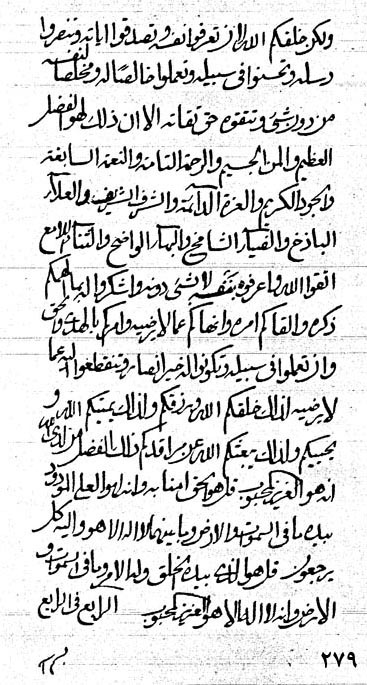 ولكن خلقكم الله لان تعرفوا نفسه وتصدقوا اياته وتنصروا
رسله وتحسنوا فى سبيله وتعملوا خالصا له ومخلصا لنفسه
من دون شئ وتتقوه حق تقاته الا ان ذلك لهو الفضل
العظيم والمن الجسيم والرحمة التامة والنعمة السابغة
والجود الكريم والعزة الدائمة والشرف الشريف والعلاء
الباذخ والضياء الشامخ والبهاء الواضح والثناء اللامع
اتقوا الله واعرفوه بنفسه لا شئ دونه واشكروا له بما الهمكم
ذكره والقاكم امره وانهاكم عما لا يرضيه وامركم بالهدى والحق
وان تعملوا فى سبيله وتكونوا له خير انصار وتنقطعوا اليه عما
لا يرضيه لذلك خلقكم الله ورزقكم ولذلك يميتكم الله و
يحييكم ولذلك يبعثكم الله عن مراقدكم ذلك الفضل من لدى الله
انه هو العزيز المحبوب قل هو الحق امنا به وانه لهو العلى المودود
بيده ما فى السموات والارض وما بينهما لا اله الا هو واليه كل
يرجعون قل هو الذى بيده الخلق وله الامر وما فى السموات و
الارض وانه لا اله الا هو العزيز المحبوب الرابع فى الرابع
٢٧٩